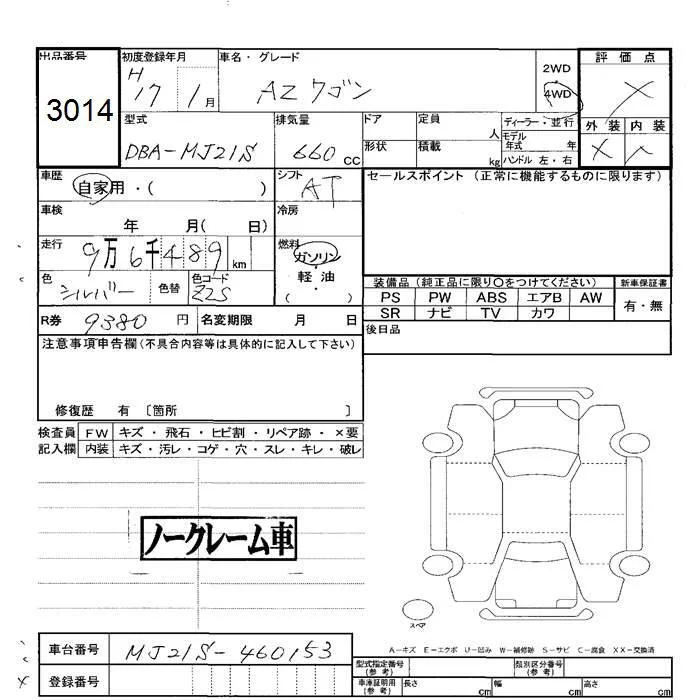 出品番号 初度登録年月 車名・グレード 2WD 評価点
3014 H17 1月 AZワゴン 4WD ×
型式 排気量 ドア 定員 人 ディーラー・並行 外装 内装
DBA-MJ21S 660cc 形状 積載 kg モデル年式 年 ハンドル 左・右 ×
車歴 自家用・( ) シフト AT セールスポイント (正常に機能するものに限ります)
車検 年 月( 日) 冷房
走行 9万6千489km 燃料 ガソリン・軽油・( )
色 シルバー 色替 色コード Z2S 装備品 (純正品に限り○をつけてください) 新車保証書
PS PW ABS エアB AW 有・無
R券 9380円 名変期限 月 日 SR ナビ TV カワ
注意事項申告欄(不具合内容等は具体的に記入して下さい) 後日品
修復歴 有 〔箇所 〕
検査員 FW キズ・飛石・ヒビ割・リペア跡・×要
記入欄 内装 キズ・汚レ・コゲ・穴・スレ・キレ・破レ
ノークレーム車
スペア
A-キズ E-エクボ U-凹み W-補修跡 S-サビ C-腐食 XX-交換済
車台番号 MJ21S-460153 型式指定番号(参考) 類別区分番号(参考)
登録番号 車庫証明用(参考) 長さ cm 幅 cm 高さ cm